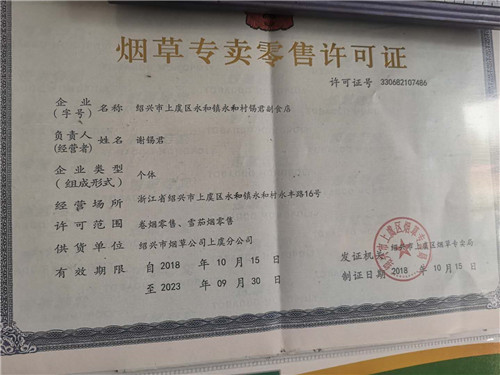 烟草专卖零售许可证
许可证号 330682107486
企业名称 绍兴市上虞区永和镇永和村锡君副食店
(字号)
负责人姓名 谢锡君
(经营者)
企业类型 个体
(组成形式)
经营场所 浙江省绍兴市上虞区永和镇永和村永丰路16号
许可范围 卷烟零售、雪茄烟零售
供货单位 绍兴市烟草公司上虞分公司
发证机关 绍兴市上虞区烟草专卖局
有效期限 自2018年10月15日
制证日期 2018年10月15日
至2023年09月30日